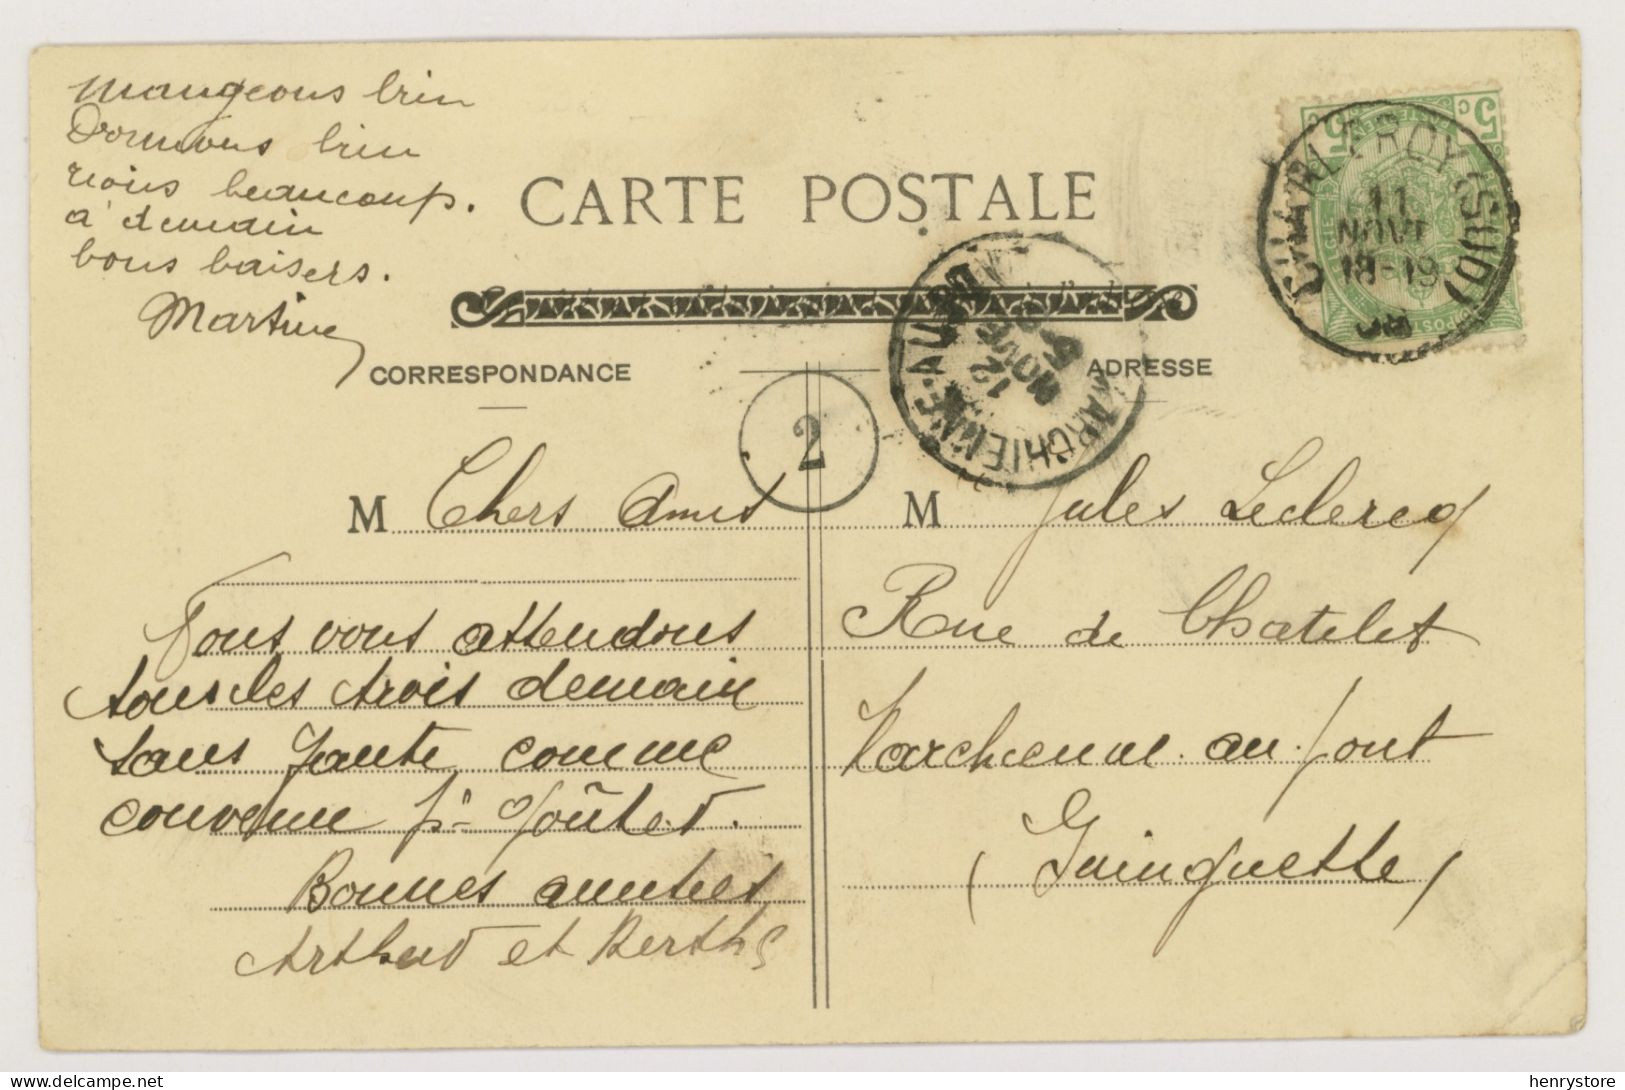 mangeons bien
Dormons bien
rions beaucoup.
à demain
bons baisers.
Martine
CARTE POSTALE
CORRESPONDANCE
ADRESSE
5 c 5 c
CHARLEROY (SUD)
11
NOVE
18-19
08
MARCHIENNE-AU-PONT
12
NOVE
5
2
M Chers Amis
Nous vous attendons
tous les trois demain
sans faute, comme
convenu pr goûter.
Bonnes amitiés
Arthur et Berthe
M Jules Leclercq
Rue de Chatelet
Marchienne au-pont
(Guinguette)
© henrystore
delcampe.net